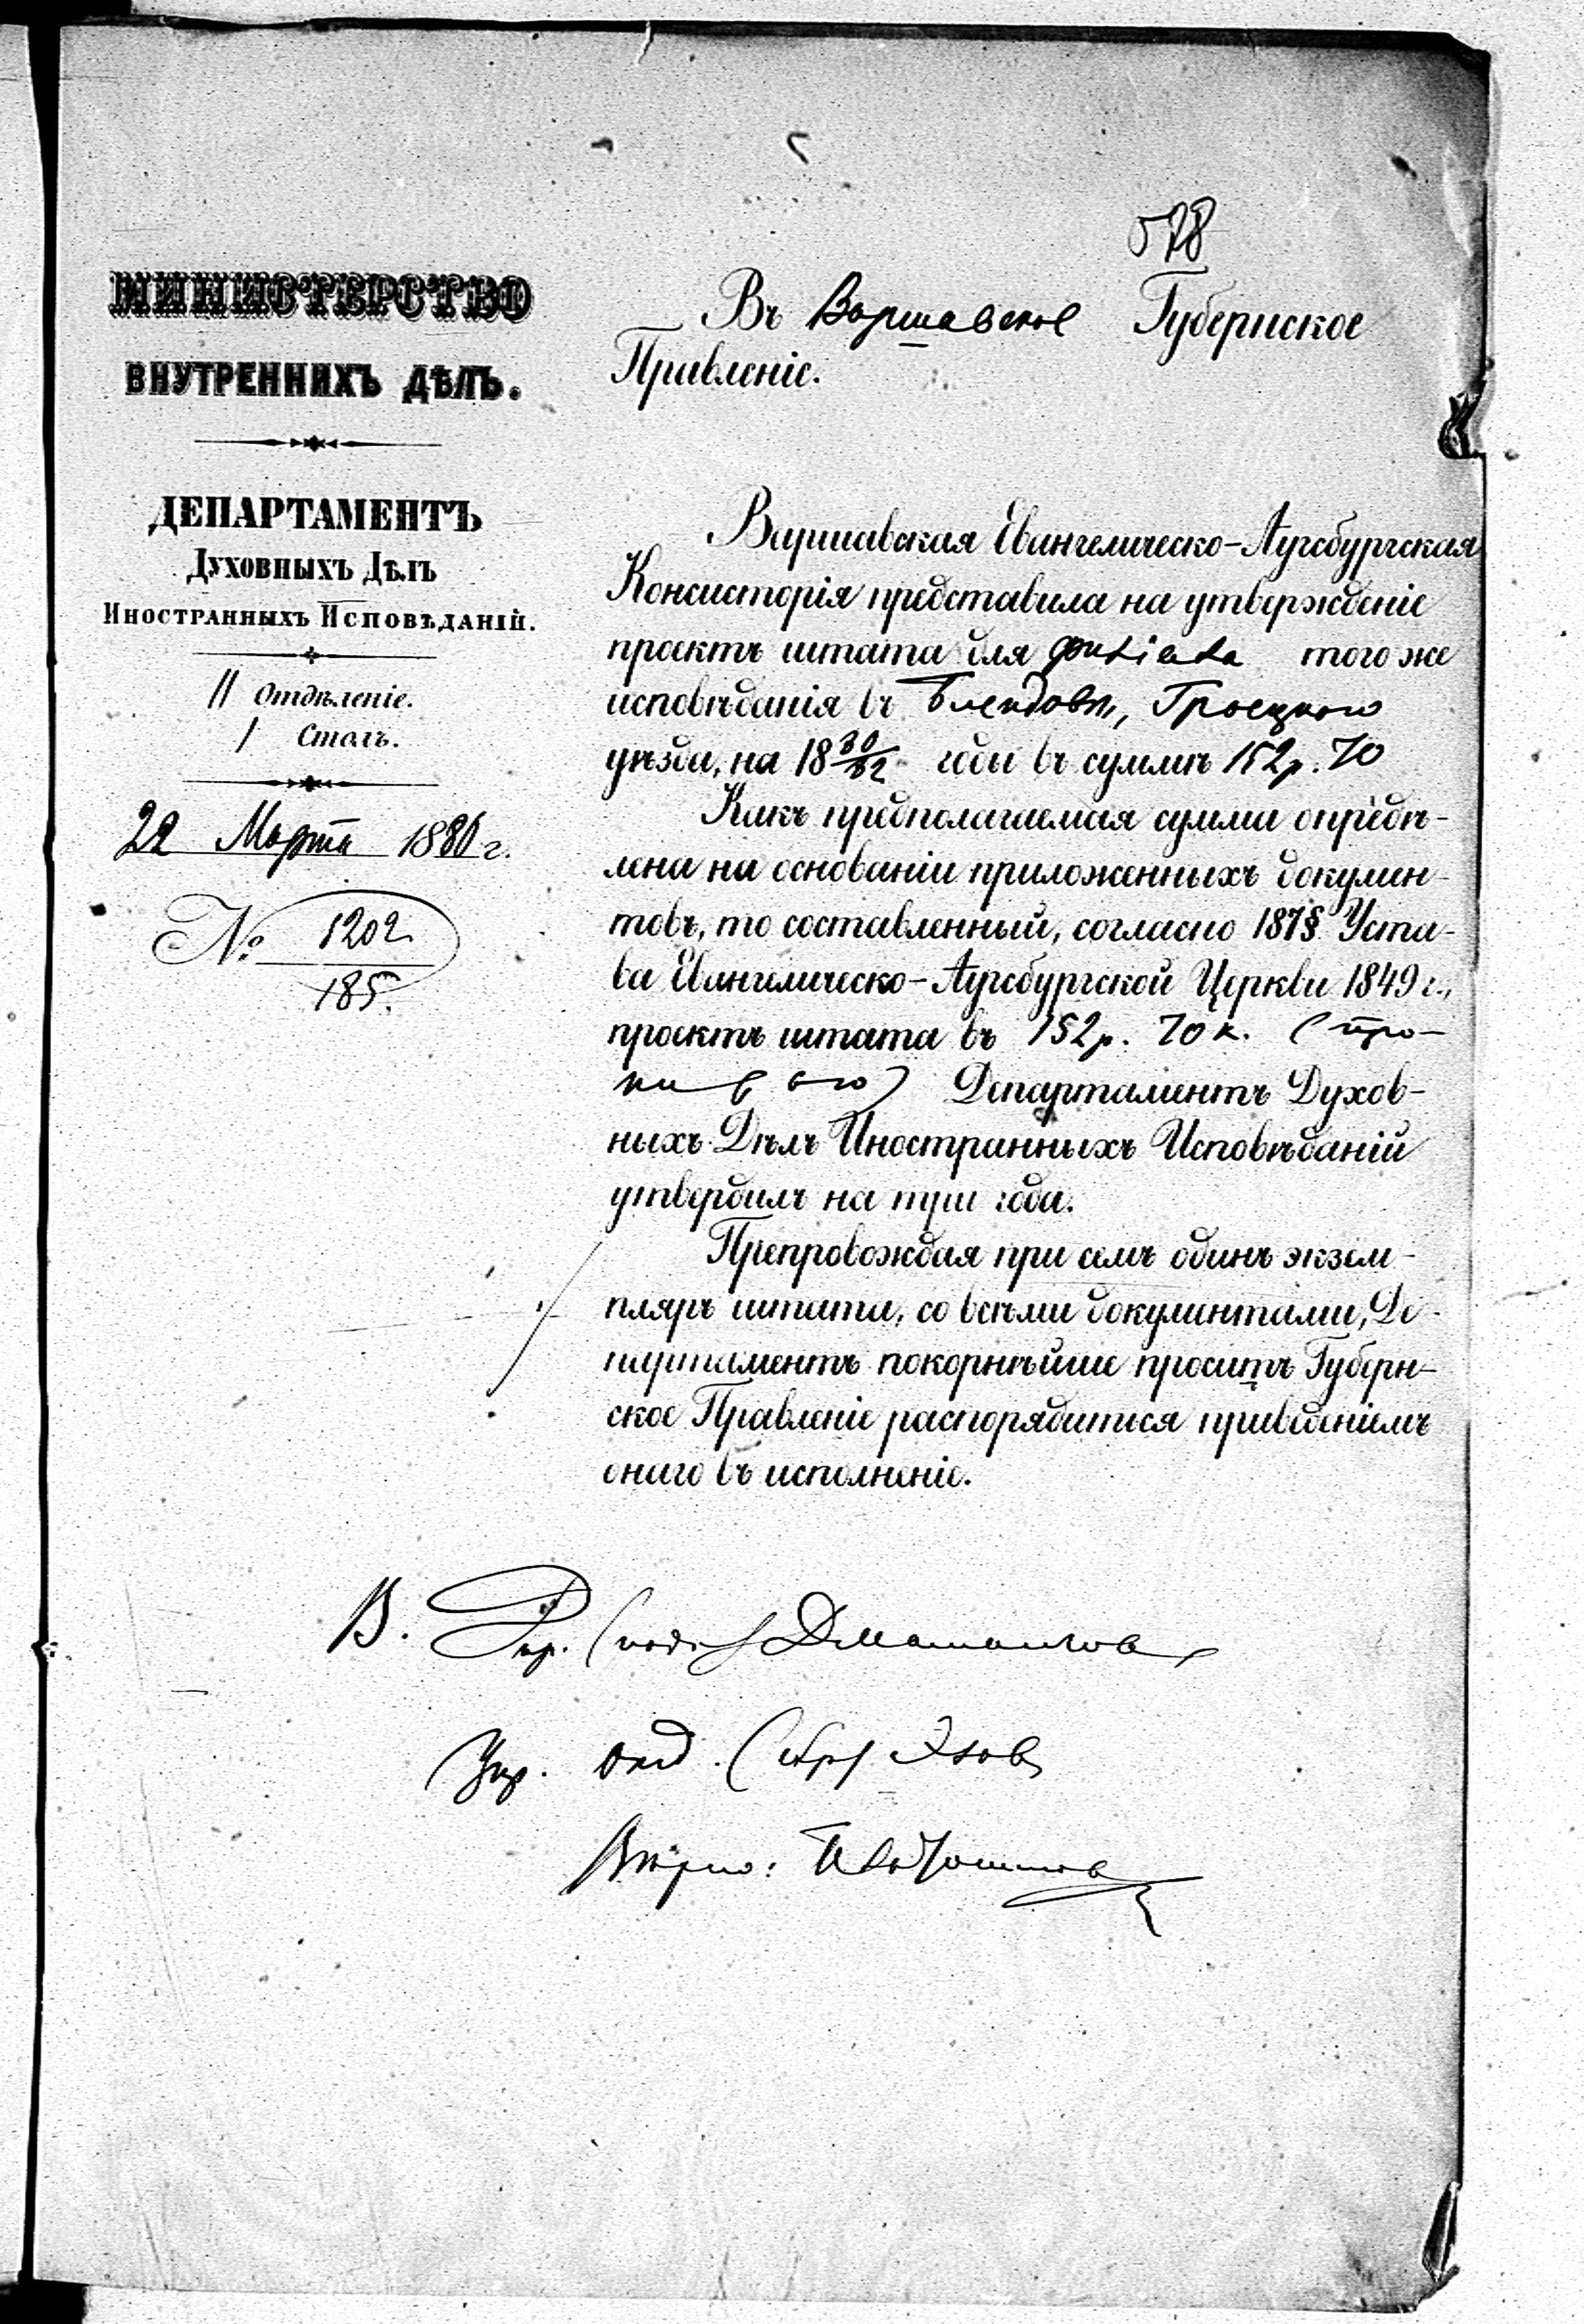 578
МИНИСТЕРСТВО
ВНУТРЕННИХЪ ДѢЛЪ.
ДЕПАРТАМЕНТЪ
ДУХОВНЫХЪ ДѢЛЪ
ИНОСТРАННЫХЪ ИСПОВѢДАНІЙ.
II Отдѣленіе.
I Столъ.
22 Марта 1880 г.
№ 1202
185.
Въ Варшавское Губернское
Правленіе.
Варшавская Евангелическо-Аугсбургская
Консисторія представила на утвержденіе
проектъ штата для филіала того же
исповѣданія въ Блендовѣ, Гроецкаго
уѣзда, на 18 80/82 годы въ суммѣ 152 р. 70
Какъ предполагаемая сумма опредѣ-
лена на основаніи приложенныхъ докумен-
товъ, то составленный, согласно 187 § Уста-
ва Евангелическо-Аугсбургской Церкви 1849 г.,
проектъ штата въ 152 р. 70 к. (про-
Департаментъ Духов-
ныхъ Дѣлъ Иностранныхъ Исповѣданій
утвердилъ на три года.
Препровождая при семъ одинъ экзем-
пляръ штата, со всѣми документами, Де-
партаментъ покорнѣйше проситъ Губерн-
ское Правленіе распорядиться приведеніемъ
онаго въ исполненіе.
В. Дир. (подп.)
Упр. отд. (подп.) Эзовъ
Вѣрно: